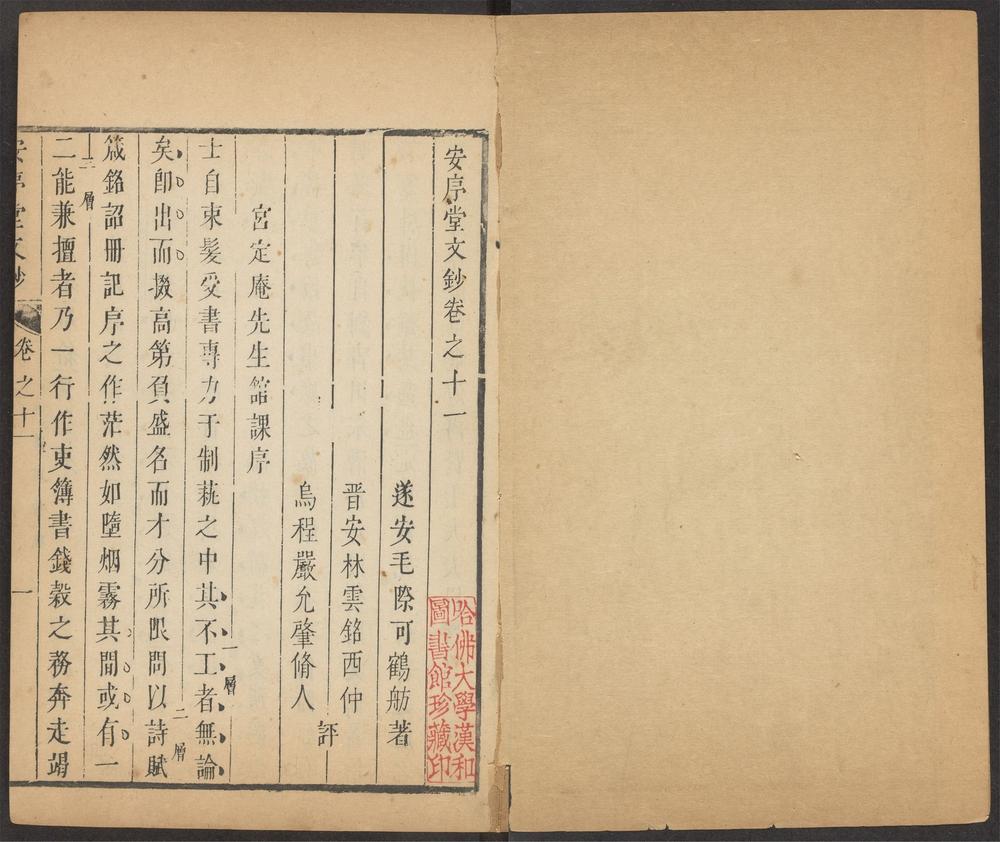 安序堂文鈔卷之十一
遂安毛際可鶴舫著
晋安林雲銘西仲
評
烏程嚴允肇脩人
宮定庵先生舘課序
士自束髮受書專力于制蓺之中其不工者無論
一層
矣卽出而掇高第負盛名而才分所限問以詩賦
二層
箴銘詔冊記序之作茫然如墮烟霧其間或有一
三層
二能兼擅者乃一行作吏簿書錢穀之務奔走竭
安序堂文鈔
卷之十一
一
哈佛大學漢和
圖書館珍藏印